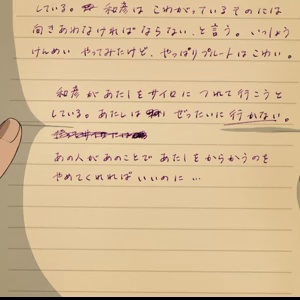 している。和彦はこわがっているそのには
向きあわなければならない、と言う。いっしょう
けんめいやってみたけど、やっぱりプルートはこわい。
和彦があたしをサイロにつれて行こうと
している。あたしはぜったいに行かない。
あの人があのことであたしをからかうのを
やめてくれればいいのに…